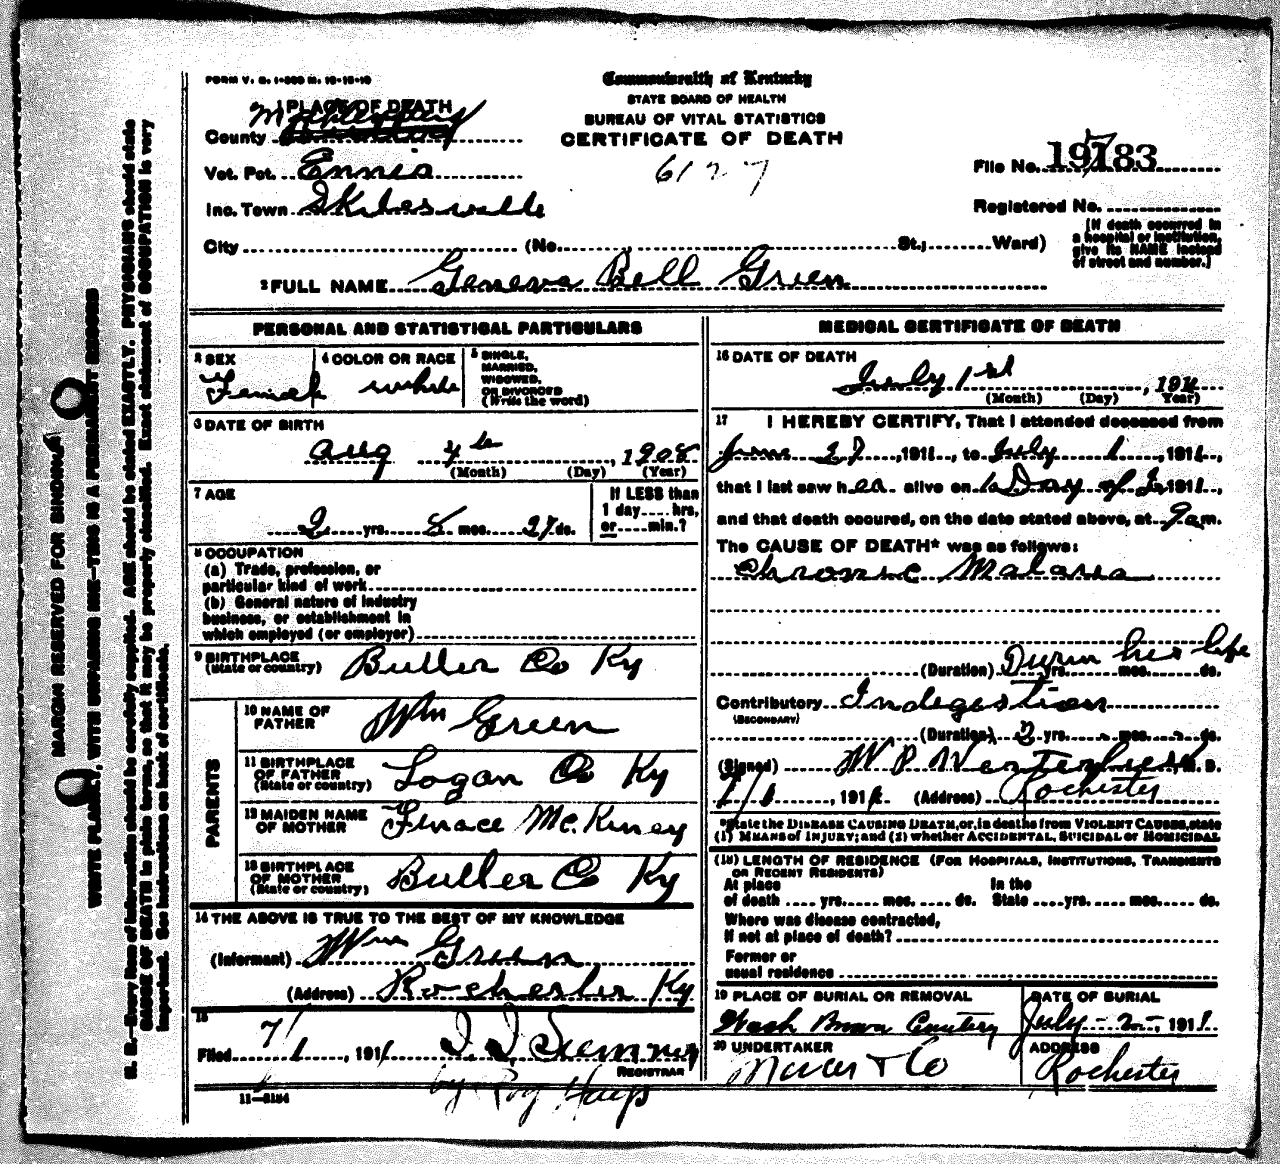 FORM V. S. 1-
Commonwealth of Kentucky
STATE BOARD OF HEALTH
BUREAU OF VITAL STATISTICS
CERTIFICATE OF DEATH
1 PLACE OF DEATH
County
Vot. Pct. Ennis
Inc. Town
City (No. St.; Ward)
6127
File No. 19183
Registered No.
[If death occurred in
a hospital or institution,
give its NAME instead
of street and number.]
2 FULL NAME Geneva Bell Green
PERSONAL AND STATISTICAL PARTICULARS
3 SEX
Female
4 COLOR OR RACE
white
5 SINGLE,
MARRIED,
WIDOWED,
OR DIVORCED
(Write the word)
6 DATE OF BIRTH
Aug 4th, 1908
(Month) (Day) (Year)
7 AGE
2 yrs. 8 mos. 27 ds.
If LESS than
1 day.....hrs,
or.....min.?
8 OCCUPATION
(a) Trade, profession, or
particular kind of work
(b) General nature of industry
business, or establishment in
which employed (or employer)
9 BIRTHPLACE
(State or country)
Butler Co Ky
PARENTS
10 NAME OF
FATHER
Wm Green
11 BIRTHPLACE
OF FATHER
(State or country)
Logan Co Ky
12 MAIDEN NAME
OF MOTHER
McKiney
13 BIRTHPLACE
OF MOTHER
(State or country)
Butler Co Ky
14 THE ABOVE IS TRUE TO THE BEST OF MY KNOWLEDGE
(Informant) Wm Green
(Address) Rochester Ky
15
Filed 7/1, 1911
REGISTRAR
by Roy
11-3184
MEDICAL CERTIFICATE OF DEATH
16 DATE OF DEATH
July 1st, 1911
(Month) (Day) Year)
17 I HEREBY CERTIFY, That I attended deceased from
June 27, 1911, to July 1, 1911,
that I last saw her alive on 1 Day of J 1911,
and that death occured, on the date stated above, at 9 am.
The CAUSE OF DEATH* was as follows:
Chronic Malaria
(Duration) Durin her life yrs. mos. ds.
Contributory Indegestion
(SECONDARY)
(Duration) 2 yrs. mos. ds.
(Signed) W P, M. D.
, 1911 (Address) Rochester
*State the DISEASE CAUSING DEATH, or, in deaths from VIOLENT CAUSES, state
(1) MEANS of INJURY; and (2) whether ACCIDENTAL, SUICIDAL or HOMICIDAL
(18) LENGTH OF RESIDENCE (FOR HOSPITALS, INSTITUTIONS, TRANSIENTS
OR RECENT RESIDENTS)
At place In the
of death .... yrs..... mos. ..... ds. State ....yrs. .... mos..... ds.
Where was disease contracted,
if not at place of death?
Former or
usual residence
19 PLACE OF BURIAL OR REMOVAL
Wash Brown Cemetery
DATE OF BURIAL
July-2-, 1911
20 UNDERTAKER
& Co
ADDRESS
Rochester
MARGIN RESERVED FOR BINDING
WRITE PLAINLY, WITH UNFADING INK—THIS IS A PERMANENT RECORD
N. B.—Every item of information should be carefully supplied. AGE should be stated EXACTLY. PHYSICIANS should state
CAUSE OF DEATH in plain terms, so that it may be properly classified. Exact statement of OCCUPATION is very
important. See instructions on back of certificate.